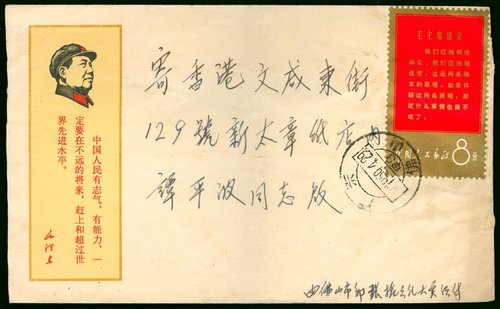 中国人民有志气，有能力，一
定要在不远的将来，赶上和超过世
界先进水平。
毛泽东
寄香港文咸東街
129號新太章纸店
譚平波同志啟
毛主席语录
我们应当相信
群众，我们应当相
信党，这是两条根
本的原理。如果怀
疑这两条原理，那
就什么事情也做不
成了。
8分
由佛山市邮